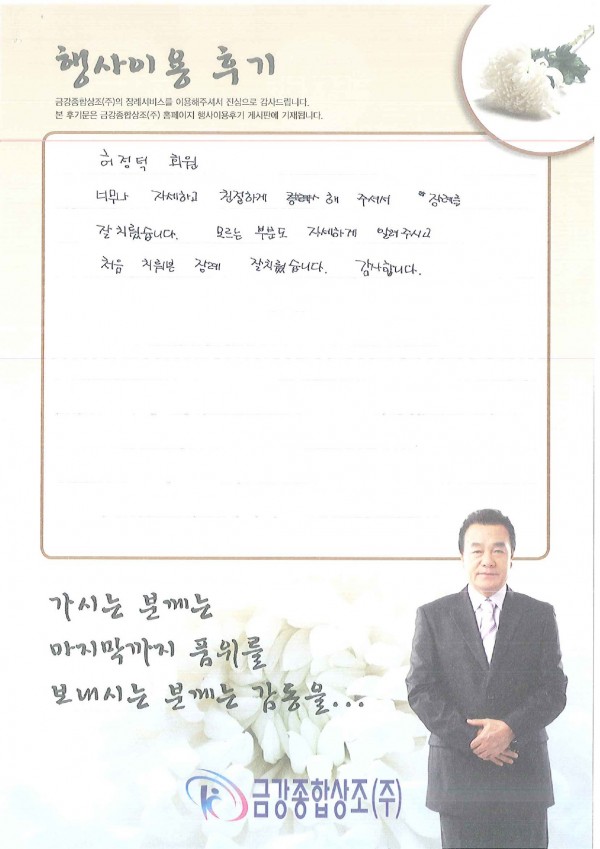 행사이용 후기
금강종합상조(주)의 장례서비스를 이용해주셔서 진심으로 감사드립니다.
본 후기문은 금강종합상조(주) 홈페이지 행사이용후기 게시판에 기재됩니다.
허정덕 회원
너무나 자세하고 친절하게 해 주셔서 장례를
잘 치뤘습니다. 모르는 부분도 자세하게 알려주시고
처음 치뤄본 장례 잘치뤘습니다. 감사합니다.
가시는 분께는
마지막까지 품위를
보내시는 분께는 감동을...
금강종합상조(주)